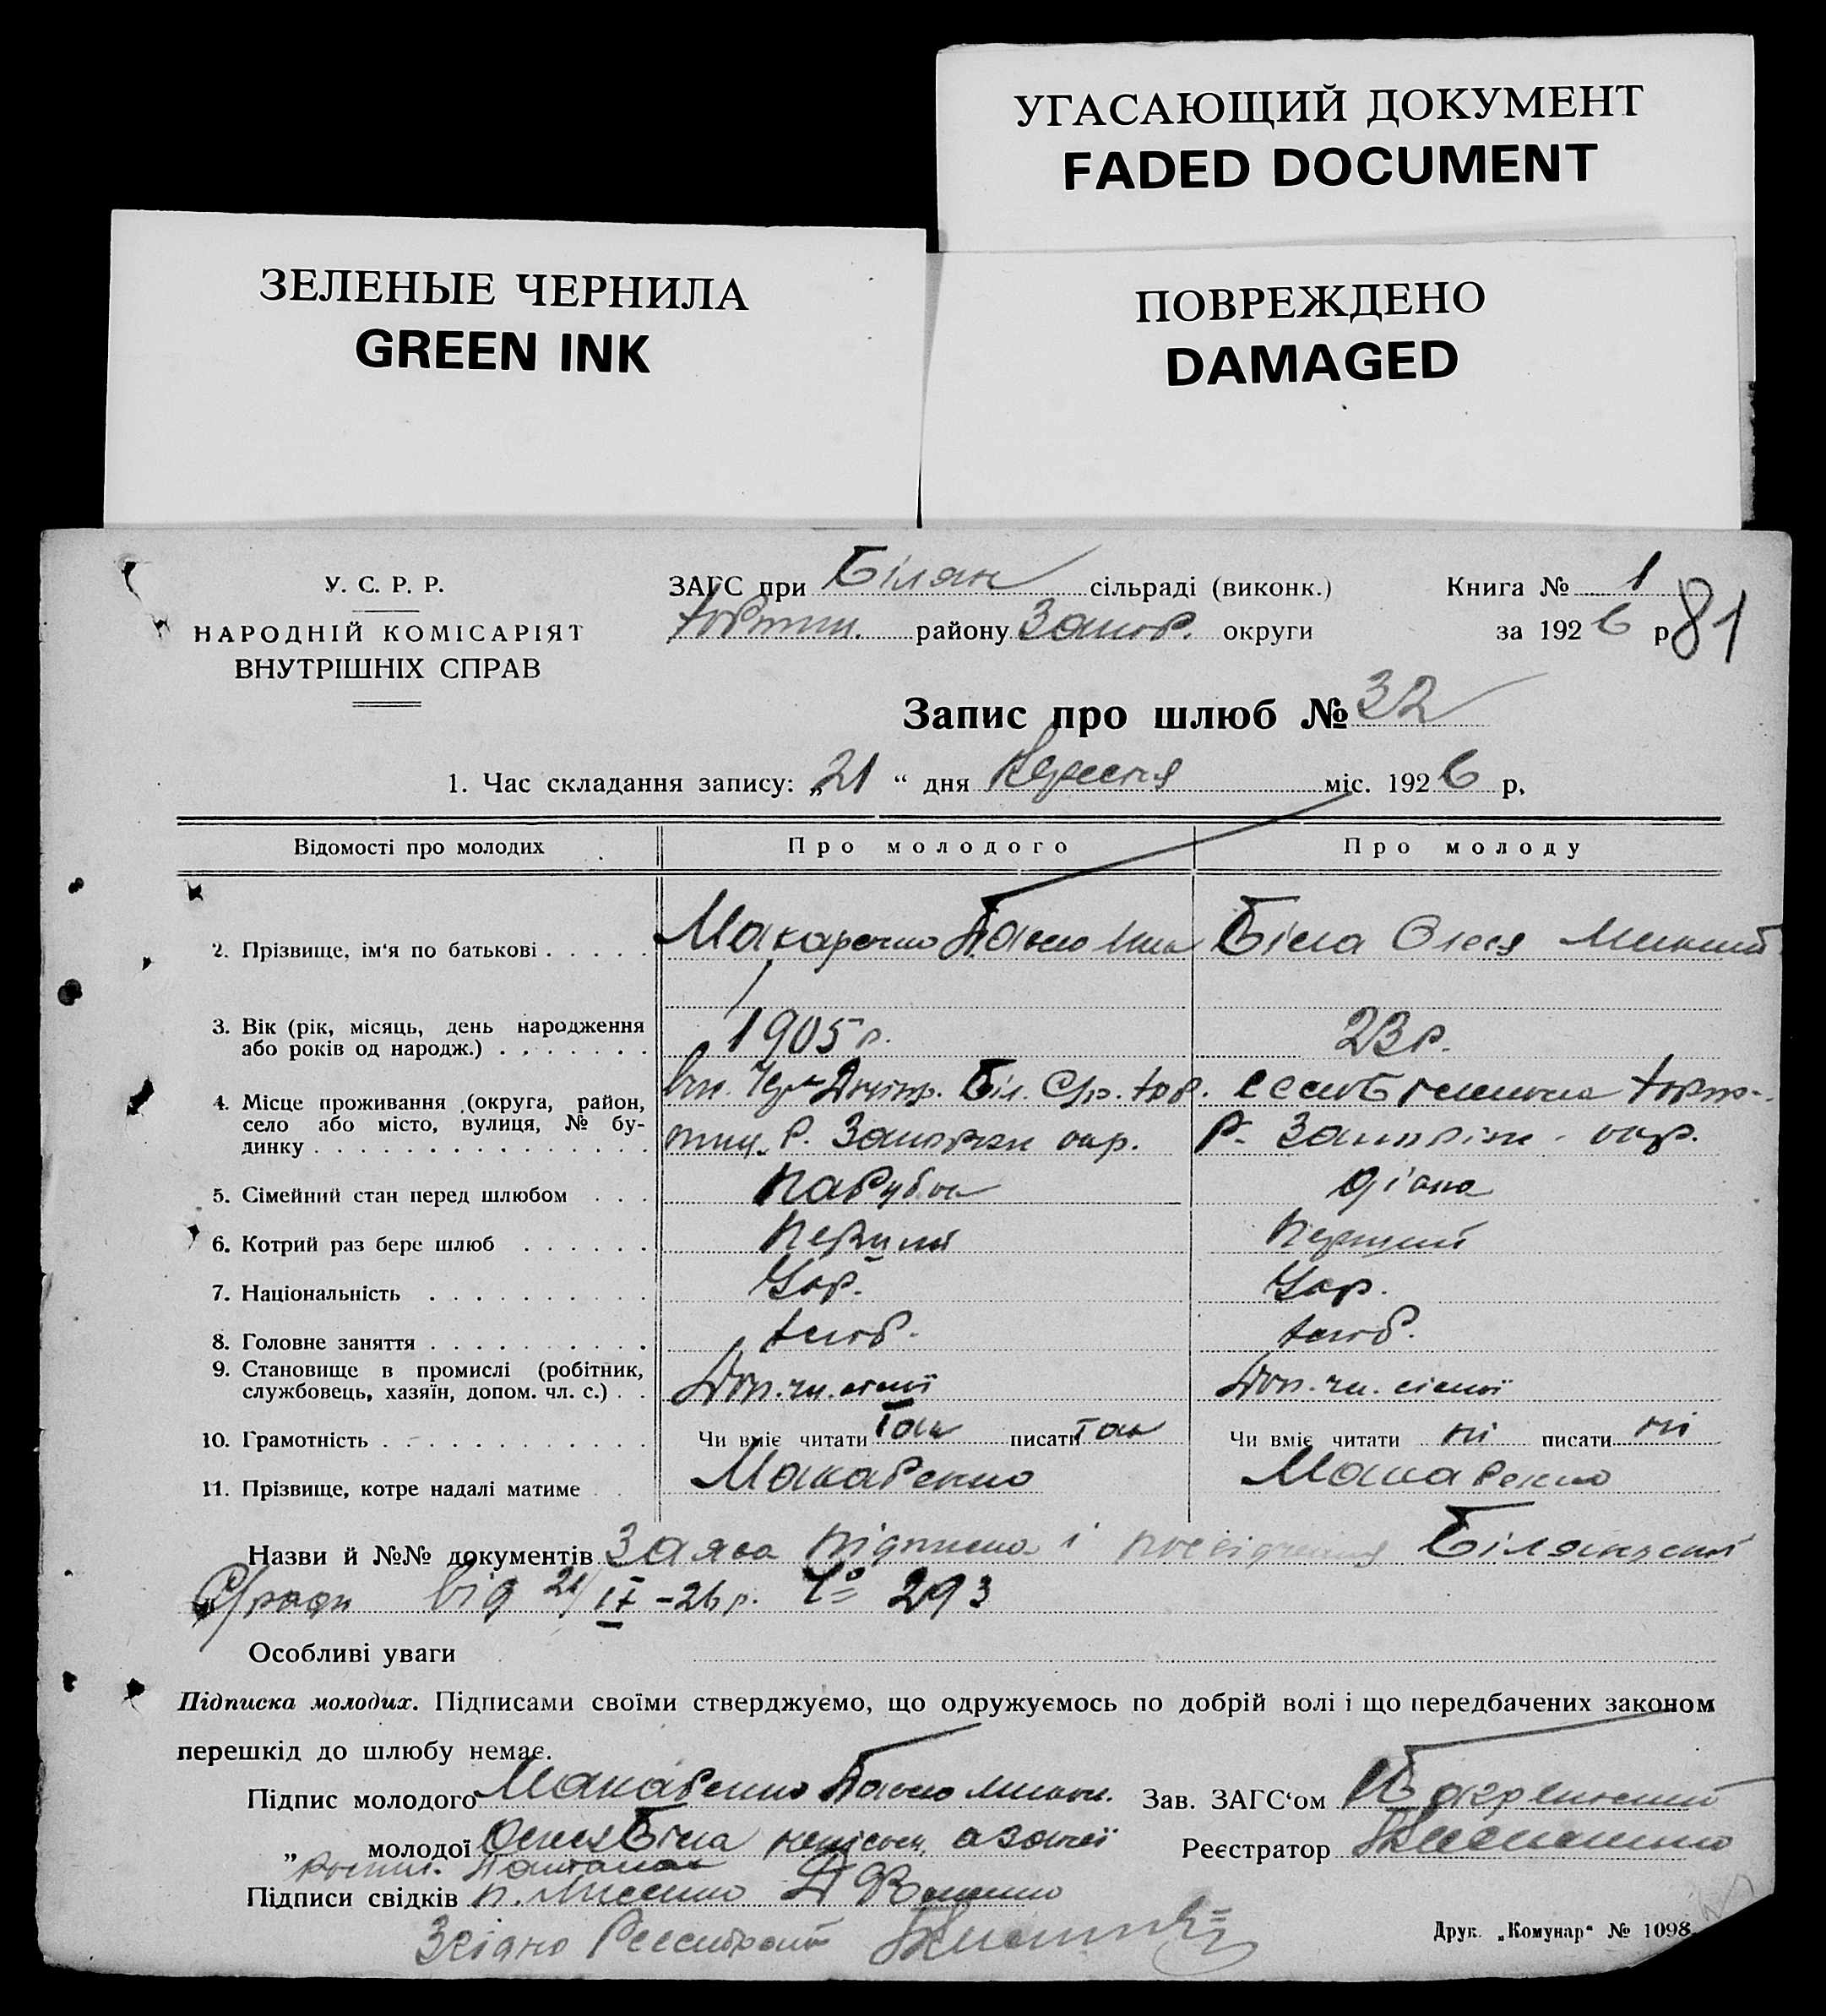 УГАСАЮЩИЙ ДОКУМЕНТ
FADED DOCUMENT
ЗЕЛЕНЫЕ ЧЕРНИЛА
GREEN INK
ПОВРЕЖДЕНО
DAMAGED
У. С. Р. Р.
НАРОДНІЙ КОМІСАРІЯТ
ВНУТРІШНІХ СПРАВ
ЗАГС при Білян сільраді (виконк.)
району Запор. округи
Книга № 1
за 1926 р
81
Запис про шлюб № 32
1. Час складання запису: „21“ дня Вересня міс. 1926 р.
Відомості про молодих
Про молодого
Про молоду
2. Прізвище, ім'я по батькові
Макаренко Панко Мик
Біла Олеся Микит
3. Вік (рік, місяць, день народження
або років од народж.)
1905 р.
23 р.
4. Місце проживання (округа, район,
село або місто, вулиця, № бу-
динку
Біл. С/р.
Р. Запоріж окр.
Р. Запоріж. окр.
5. Сімейний стан перед шлюбом
Парубок
дівка
6. Котрий раз бере шлюб
Перший
Перший
7. Національність
Укр.
Укр.
8. Головне заняття
хлїб.
хлїб.
9. Становище в промислі (робітник,
службовець, хазяїн, допом. чл. с.)
Доп. чл. сімї
Доп. чл. сімї
10. Грамотність
Чи вміє читати Так писати Так
Чи вміє читати ні писати ні
11. Прізвище, котре надалі матиме
Макаренко
Макаренко
Назви й №№ документів Заява підписка і посвідчення Білянської
С/ради від 21/IX-26 р. № 293
Особливі уваги
Підписка молодих. Підписами своїми стверджуємо, що одружуємось по добрій волі і що передбачених законом
перешкід до шлюбу немає.
Підпис молодого Макаренко Панко Микит.
Зав. ЗАГС'ом
„ молодої Олеся Біла неписьм. а за неї
Реєстратор
Підписи свідків
Згідно
Друк. „Комунар“ № 1098